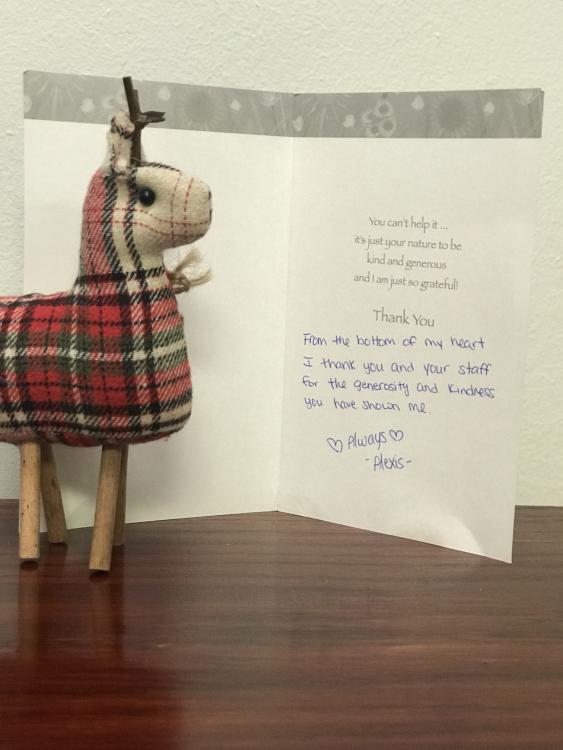 You can't help it ...
it's just your nature to be
kind and generous
and I am just so grateful!
Thank You
From the bottom of my heart
I thank you and your staff
for the generosity and kindness
you have shown me.
♡ Always ♡
- Alexis -